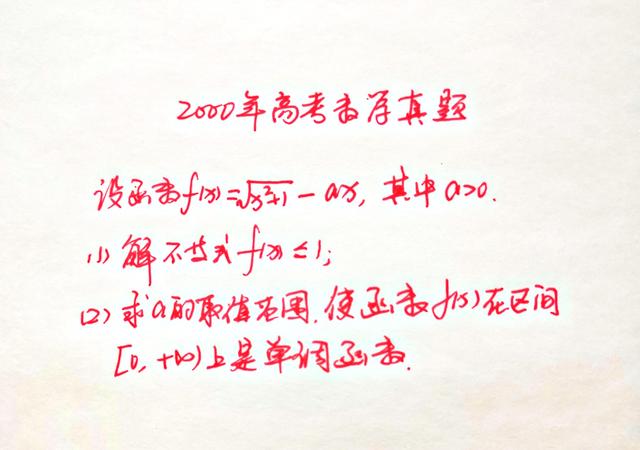 2000年高考数学真题
设函数f(x)=√x²+1 - ax, 其中a>0.
(1) 解不等式f(x)≤1;
(2) 求a的取值范围,使函数f(x)在区间
[0,+∞)上是单调函数.